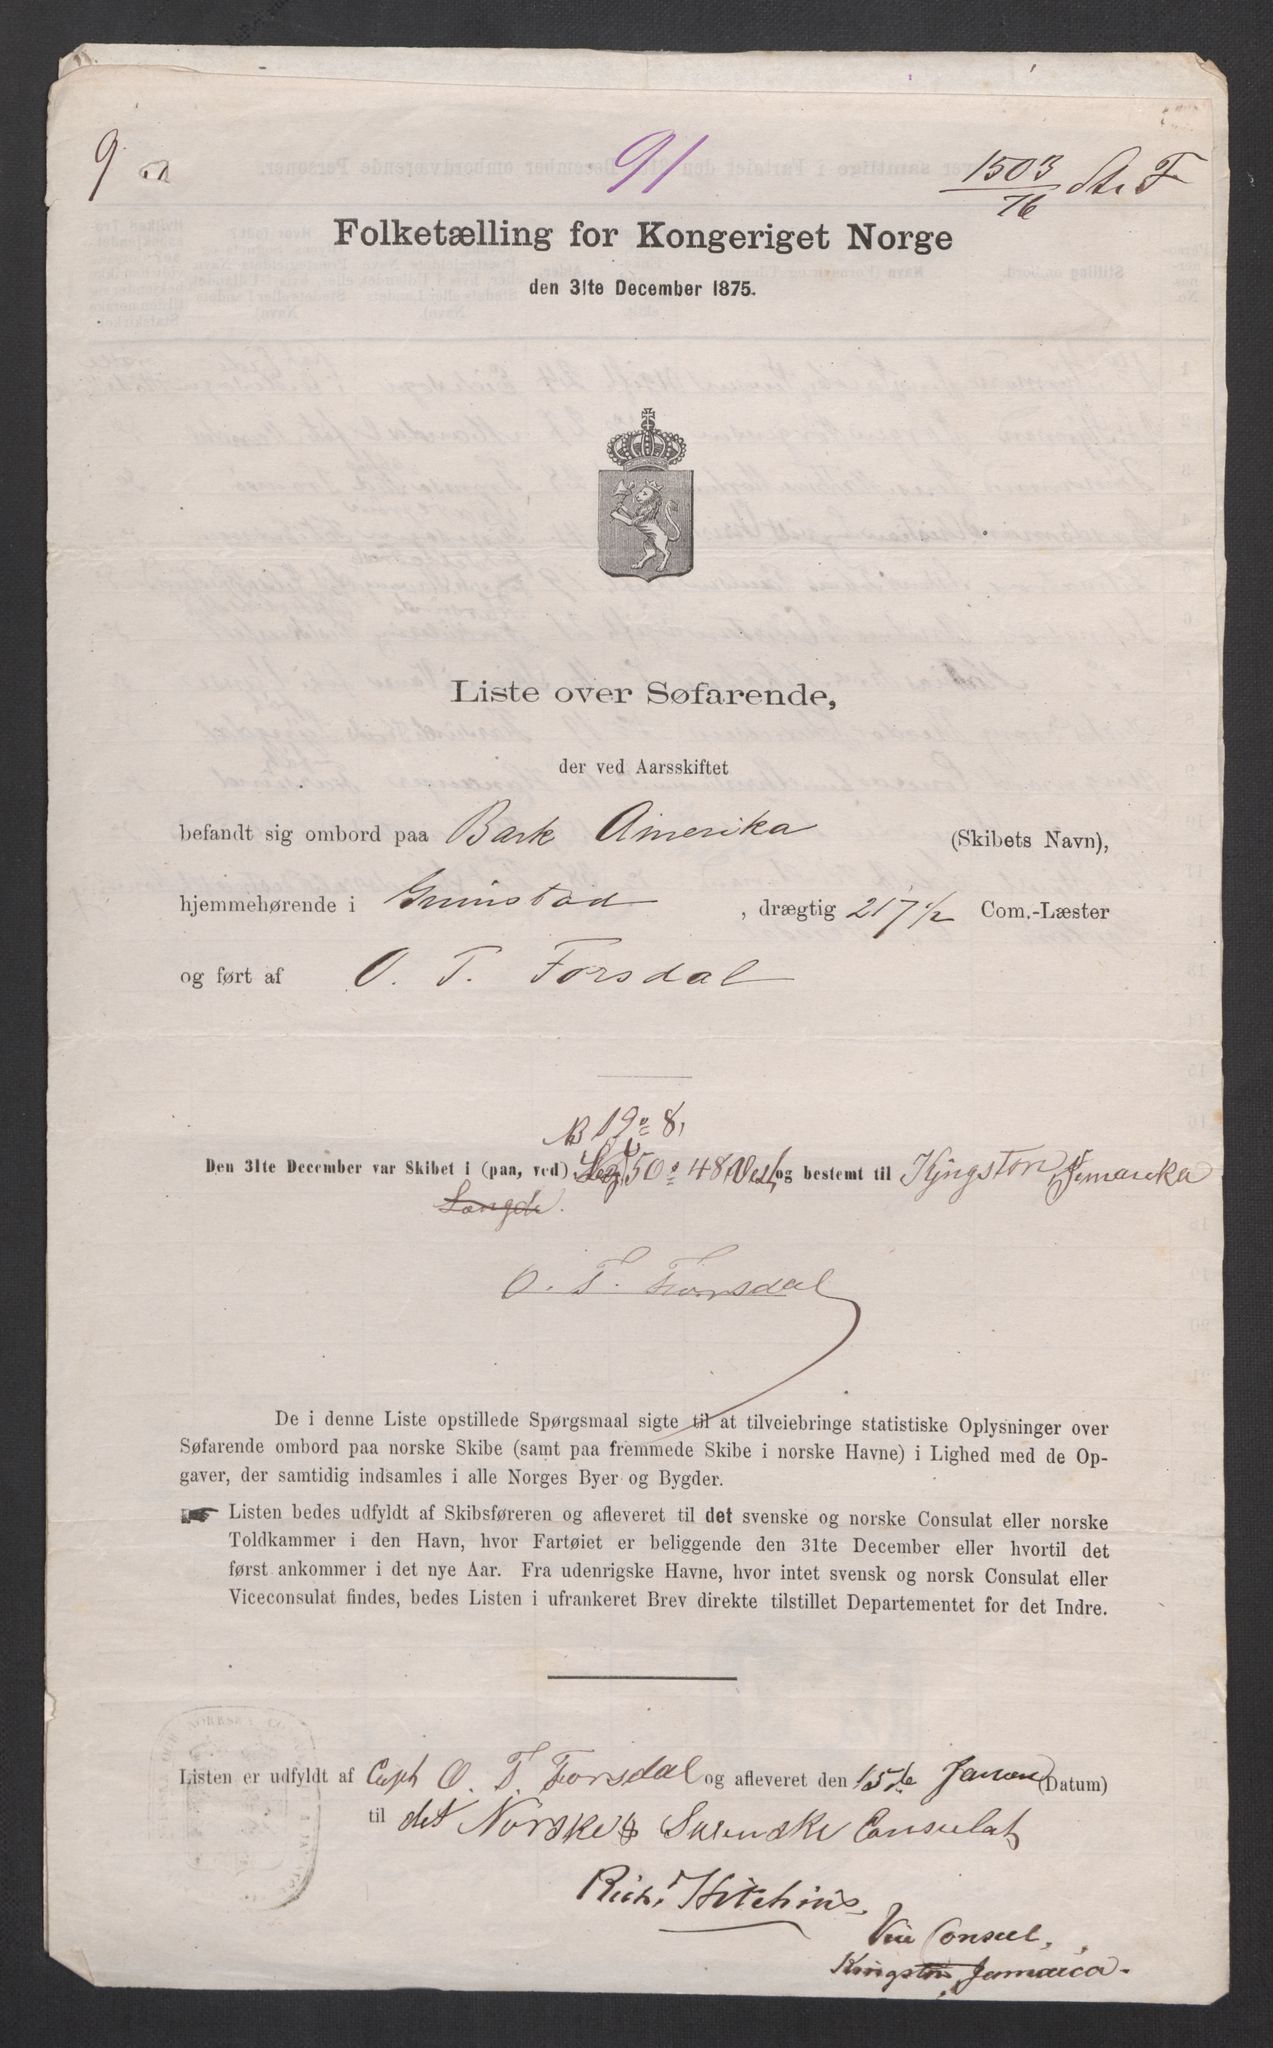 9
91
1503/76
Folketælling for Kongeriget Norge
den 31te December 1875.
Liste over Søfarende,
der ved Aarsskiftet
befandt sig ombord paa Bark Amerika (Skibets Navn),
hjemmehørende i Grimstad, drægtig 217 1/2 Com.-Læster
og ført af O. T. Forsdal
19° 8,
Den 31te December var Skibet i (paa, ved) 50° 48 Vest, og bestemt til Kjngston, Jemaика
Længde.
O. T. Forsdal
De i denne Liste opstillede Spørgsmaal sigte til at tilveiebringe statistiske Oplysninger over
Søfarende ombord paa norske Skibe (samt paa fremmede Skibe i norske Havne) i Lighed med de Op-
gaver, der samtidig indsamles i alle Norges Byer og Bygder.
Listen bedes udfyldt af Skibsføreren og afleveret til det svenske og norske Consulat eller norske
Toldkammer i den Havn, hvor Fartøiet er beliggende den 31te December eller hvortil det
først ankommer i det nye Aar. Fra udenrigske Havne, hvor intet svensk og norsk Consulat eller
Viceconsulat findes, bedes Listen i ufrankeret Brev direkte tilstillet Departementet for det Indre.
Listen er udfyldt af Capt O. T. Forsdal og afleveret den 15de Januar (Datum)
til det Norske & Svenske Consulat
Richd Hitchins,
Vice Consul,
Kingston, Jamaica.